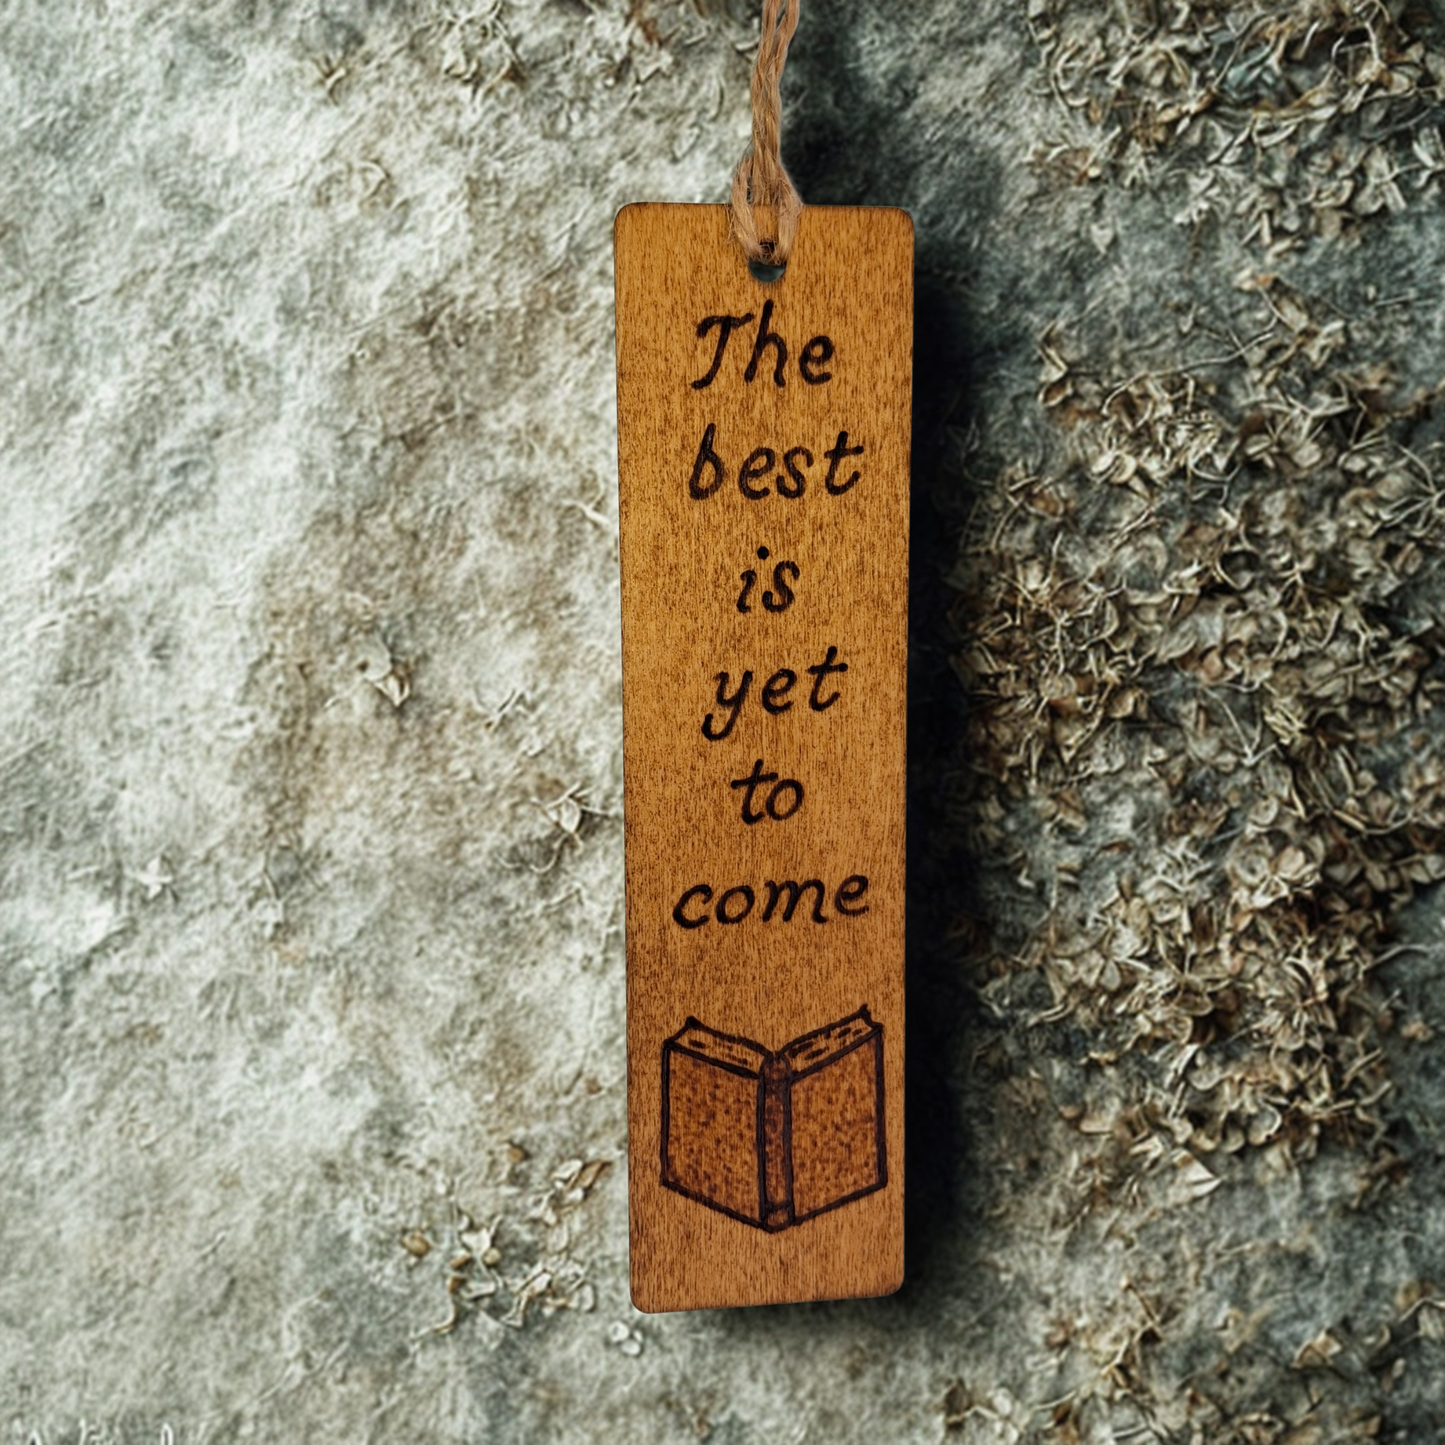 The
best
is
yet
to
come